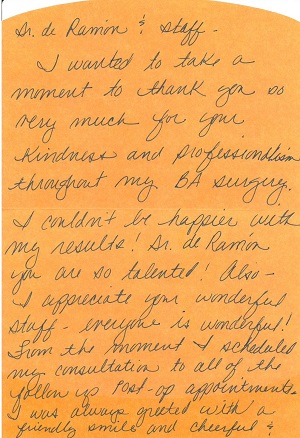 Dr. de Ramón & Staff -
I wanted to take a
moment to thank you so
very much for your
kindness and professionalism
throughout my BA surgery.
I couldn't be happier with
my results! Dr. de Ramón
you are so talented! Also -
I appreciate your wonderful
staff - everyone is wonderful!
From the moment I scheduled
my consultation to all of the
follow up post-op appointments
I was always greeted with a
friendly smile and cheerful &